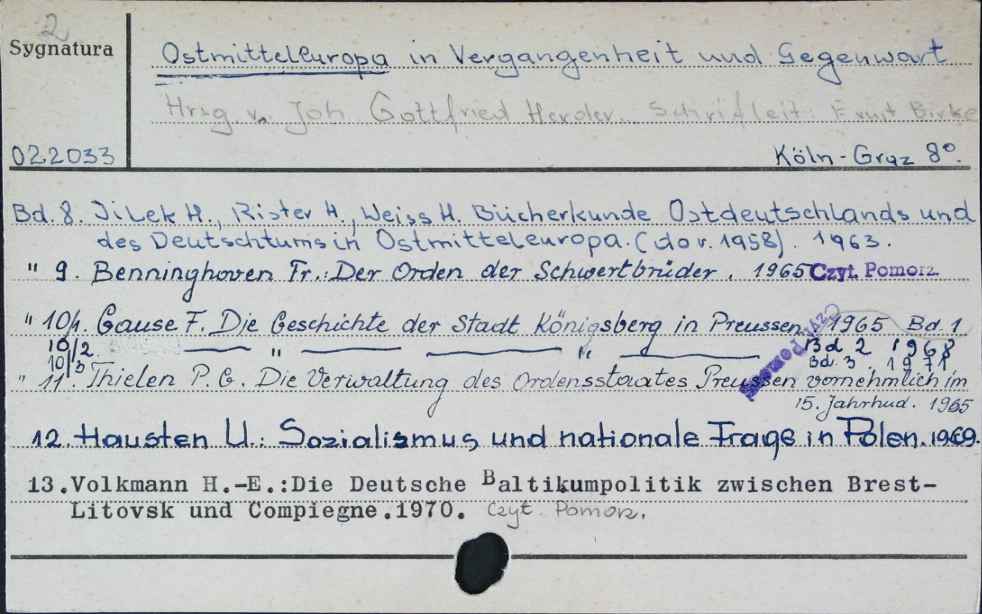 2
Sygnatura
Ostmitteleuropa in Vergangenheit und Gegenwart
Hrsg v. Joh Gottfried Herder. Schriftleit. Ernst Birke
022033
Köln-Graz 8°.
Bd. 8. Jilek H., Rister H., Weiss H. Bücherkunde Ostdeutschlands und
des Deutschtums in Ostmitteleuropa. (do r. 1958). 1963.
" 9. Benninghoven Fr.: Der Orden der Schwertbrüder. 1965 Czyt. Pomorz.
" 10/1. Gause F. Die Geschichte der Stadt Königsberg in Preussen. 1965 Bd. 1
10/2 — " — — " — Bd 2 1968
10/3 Bd. 3. 1971
Czyt. Pomorz
" 11. Thielen P. G. Die Verwaltung des Ordensstaates Preussen vornehmlich im
15. Jahrhud. 1965
12. Hausten U.: Sozialismus und nationale Frage in Polen. 1969.
13. Volkmann H.-E.: Die Deutsche Baltikumpolitik zwischen Brest-
Litovsk und Compiegne. 1970. Czyt. Pomorz.